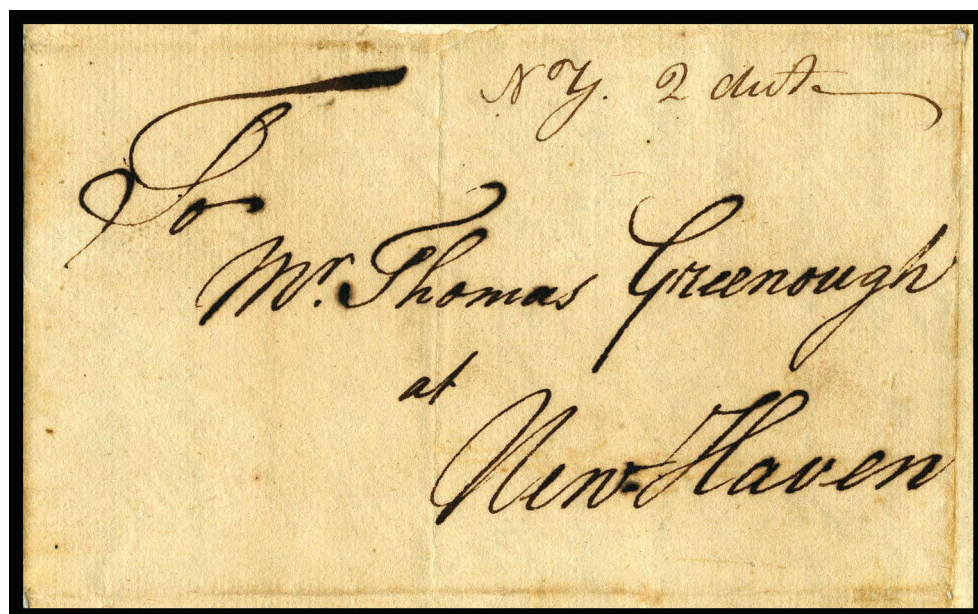 NY. 2 dwt.
To
Mr. Thomas Greenough
at
New-Haven